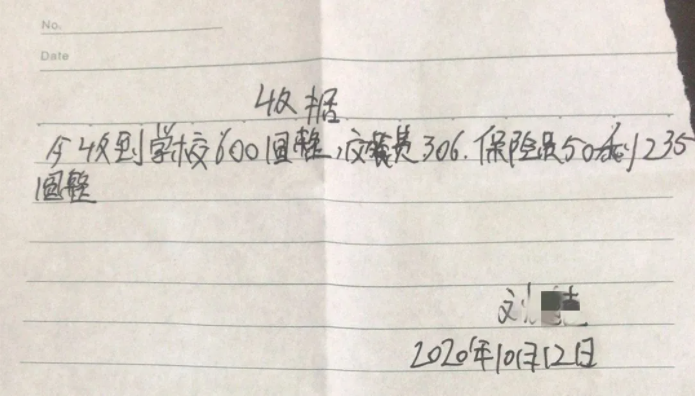 No.
Date
收据
今收到学校600圆整,校装费306.保险费50剩1235
圆整
刘
2020年10月12日